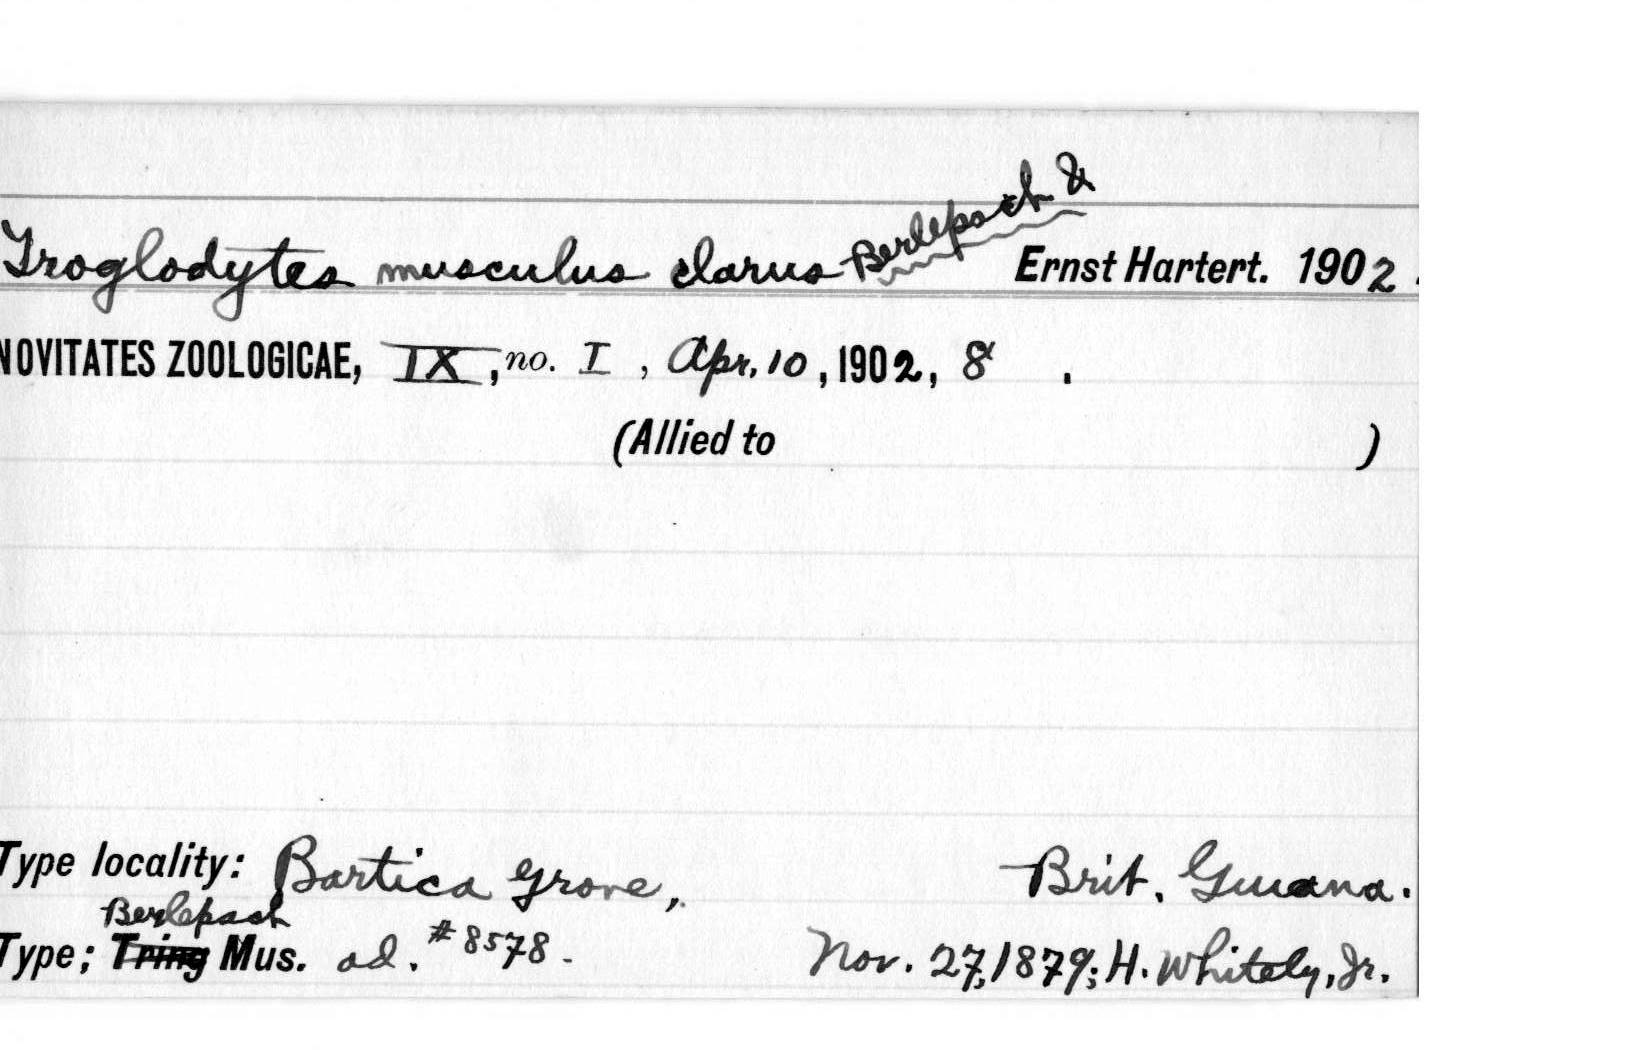 Troglodytes musculus clarus Berlepsch & Ernst Hartert. 1902.
NOVITATES ZOOLOGICAE, IX, no. I, Apr. 10, 1902, 8.
(Allied to )
Type locality: Bartica Grove, Brit. Guiana.
Berlepsch
Type; Tring Mus. ad. #8578. Nov. 27, 1879; H. Whitely, Jr.